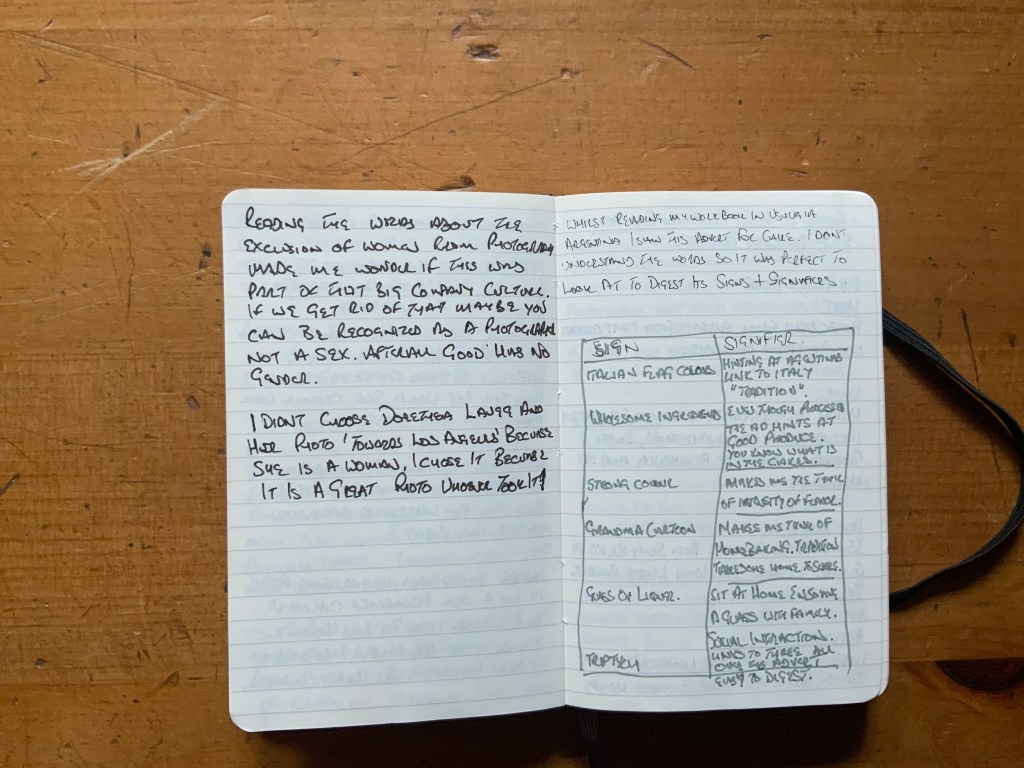 READING THE WORDS ABOUT THE
EXCLUSION OF WOMAN FROM PHOTOGRAPHY
MADE ME WONDER IF THIS WAS
PART OF THAT BIG COMPANY CULTURE.
IF WE GET RID OF THAT MAYBE YOU
CAN BE RECOGNIZED AS A PHOTOGRAPHER
NOT A SEX. AFTERALL GOOD HAS NO
GENDER.
I DIDNT CHOOSE DORETHEA LANGE AND
HER PHOTO 'TOWARDS LOS ANGELES' BECAUSE
SHE IS A WOMAN, I CHOSE IT BECAUSE
IT IS A GREAT PHOTO WHOEVER TOOK IT!
WHILST READING MY WORKBOOK IN USHUAIA
ARGENTINA I SAW THIS ADVERT FOR CAKE. I DONT
UNDERSTAND THE WORDS SO IT WAS PERFECT TO
LOOK AT TO DIGEST ITS SIGNS + SIGNIFIERS.
SIGN SIGNIFIER.
ITALIAN FLAG COLOURS HINTING AT ARGENTINAS
LINK TO ITALY
"TRADITION".
WHOLESOME INGREDIENTS EVEN THOUGH PROCESSED
THE AD HINTS AT
GOOD PRODUCE.
YOU KNOW WHAT IS
IN THE CAKES.
STRONG COLOUR MAKES ME THINK
OF INTENSITY OF FLAVOR.
GRANDMA CARTOON MAKES ME THINK OF
HOME BAKING, TRADITION
HOME
GLASS OF LIQUER. SIT AT HOME ENJOYING
A GLASS WITH FAMILY.
SOCIAL INTERACTION.
TRIPTYCH LINKS TO THREES ALL
OVER THE ADVERT
EASY TO DIGEST.